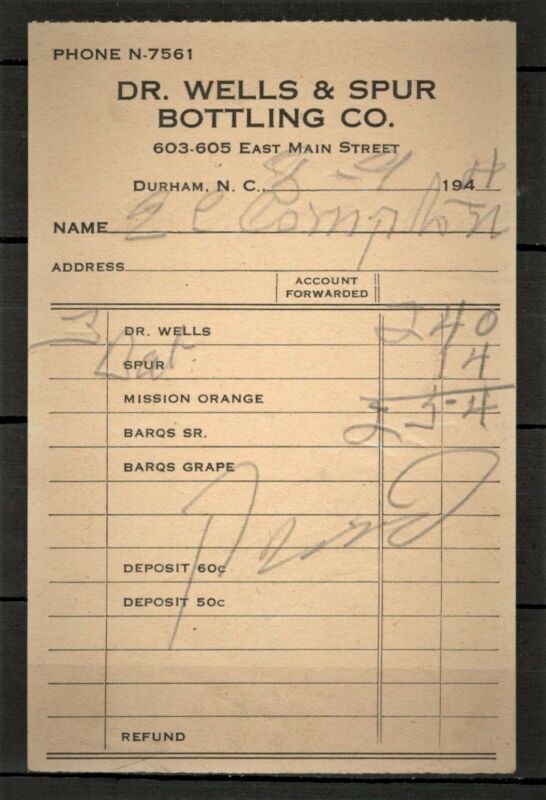 PHONE N-7561
DR. WELLS & SPUR
BOTTLING CO.
603-605 EAST MAIN STREET
DURHAM, N. C., 8-9 194
NAME E C Compton
ADDRESS
ACCOUNT
FORWARDED
3 DR. WELLS 2 40
SPUR 14
MISSION ORANGE 2 54
BARQS SR.
BARQS GRAPE
Paid
DEPOSIT 60c
DEPOSIT 50c
REFUND